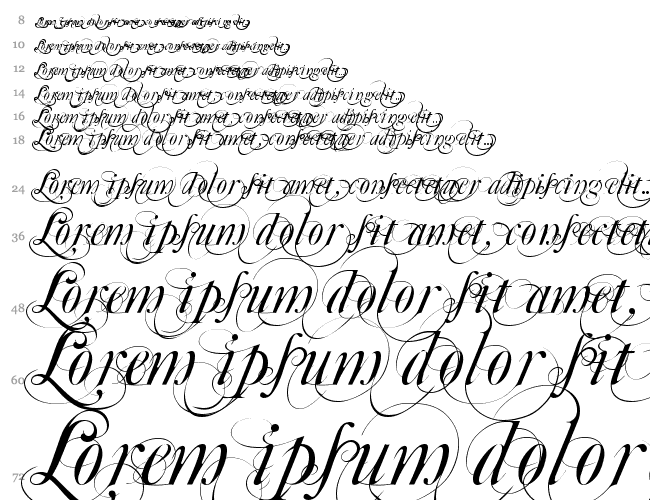 8 Lorem ipsum dolor sit amet, consectetaer adipiscing elit..
10 Lorem ipsum dolor sit amet, consectetaer adipiscing elit..
12 Lorem ipsum dolor sit amet, consectetaer adipiscing elit..
14 Lorem ipsum dolor sit amet, consectetaer adipiscing elit..
16 Lorem ipsum dolor sit amet, consectetaer adipiscing elit..
18 Lorem ipsum dolor sit amet, consectetaer adipiscing elit..
24 Lorem ipsum dolor sit amet, consectetaer adipiscing elit..
36 Lorem ipsum dolor sit amet, consectet
48 Lorem ipsum dolor sit amet,
60 Lorem ipsum dolor sit
72 Lorem ipsum dolor